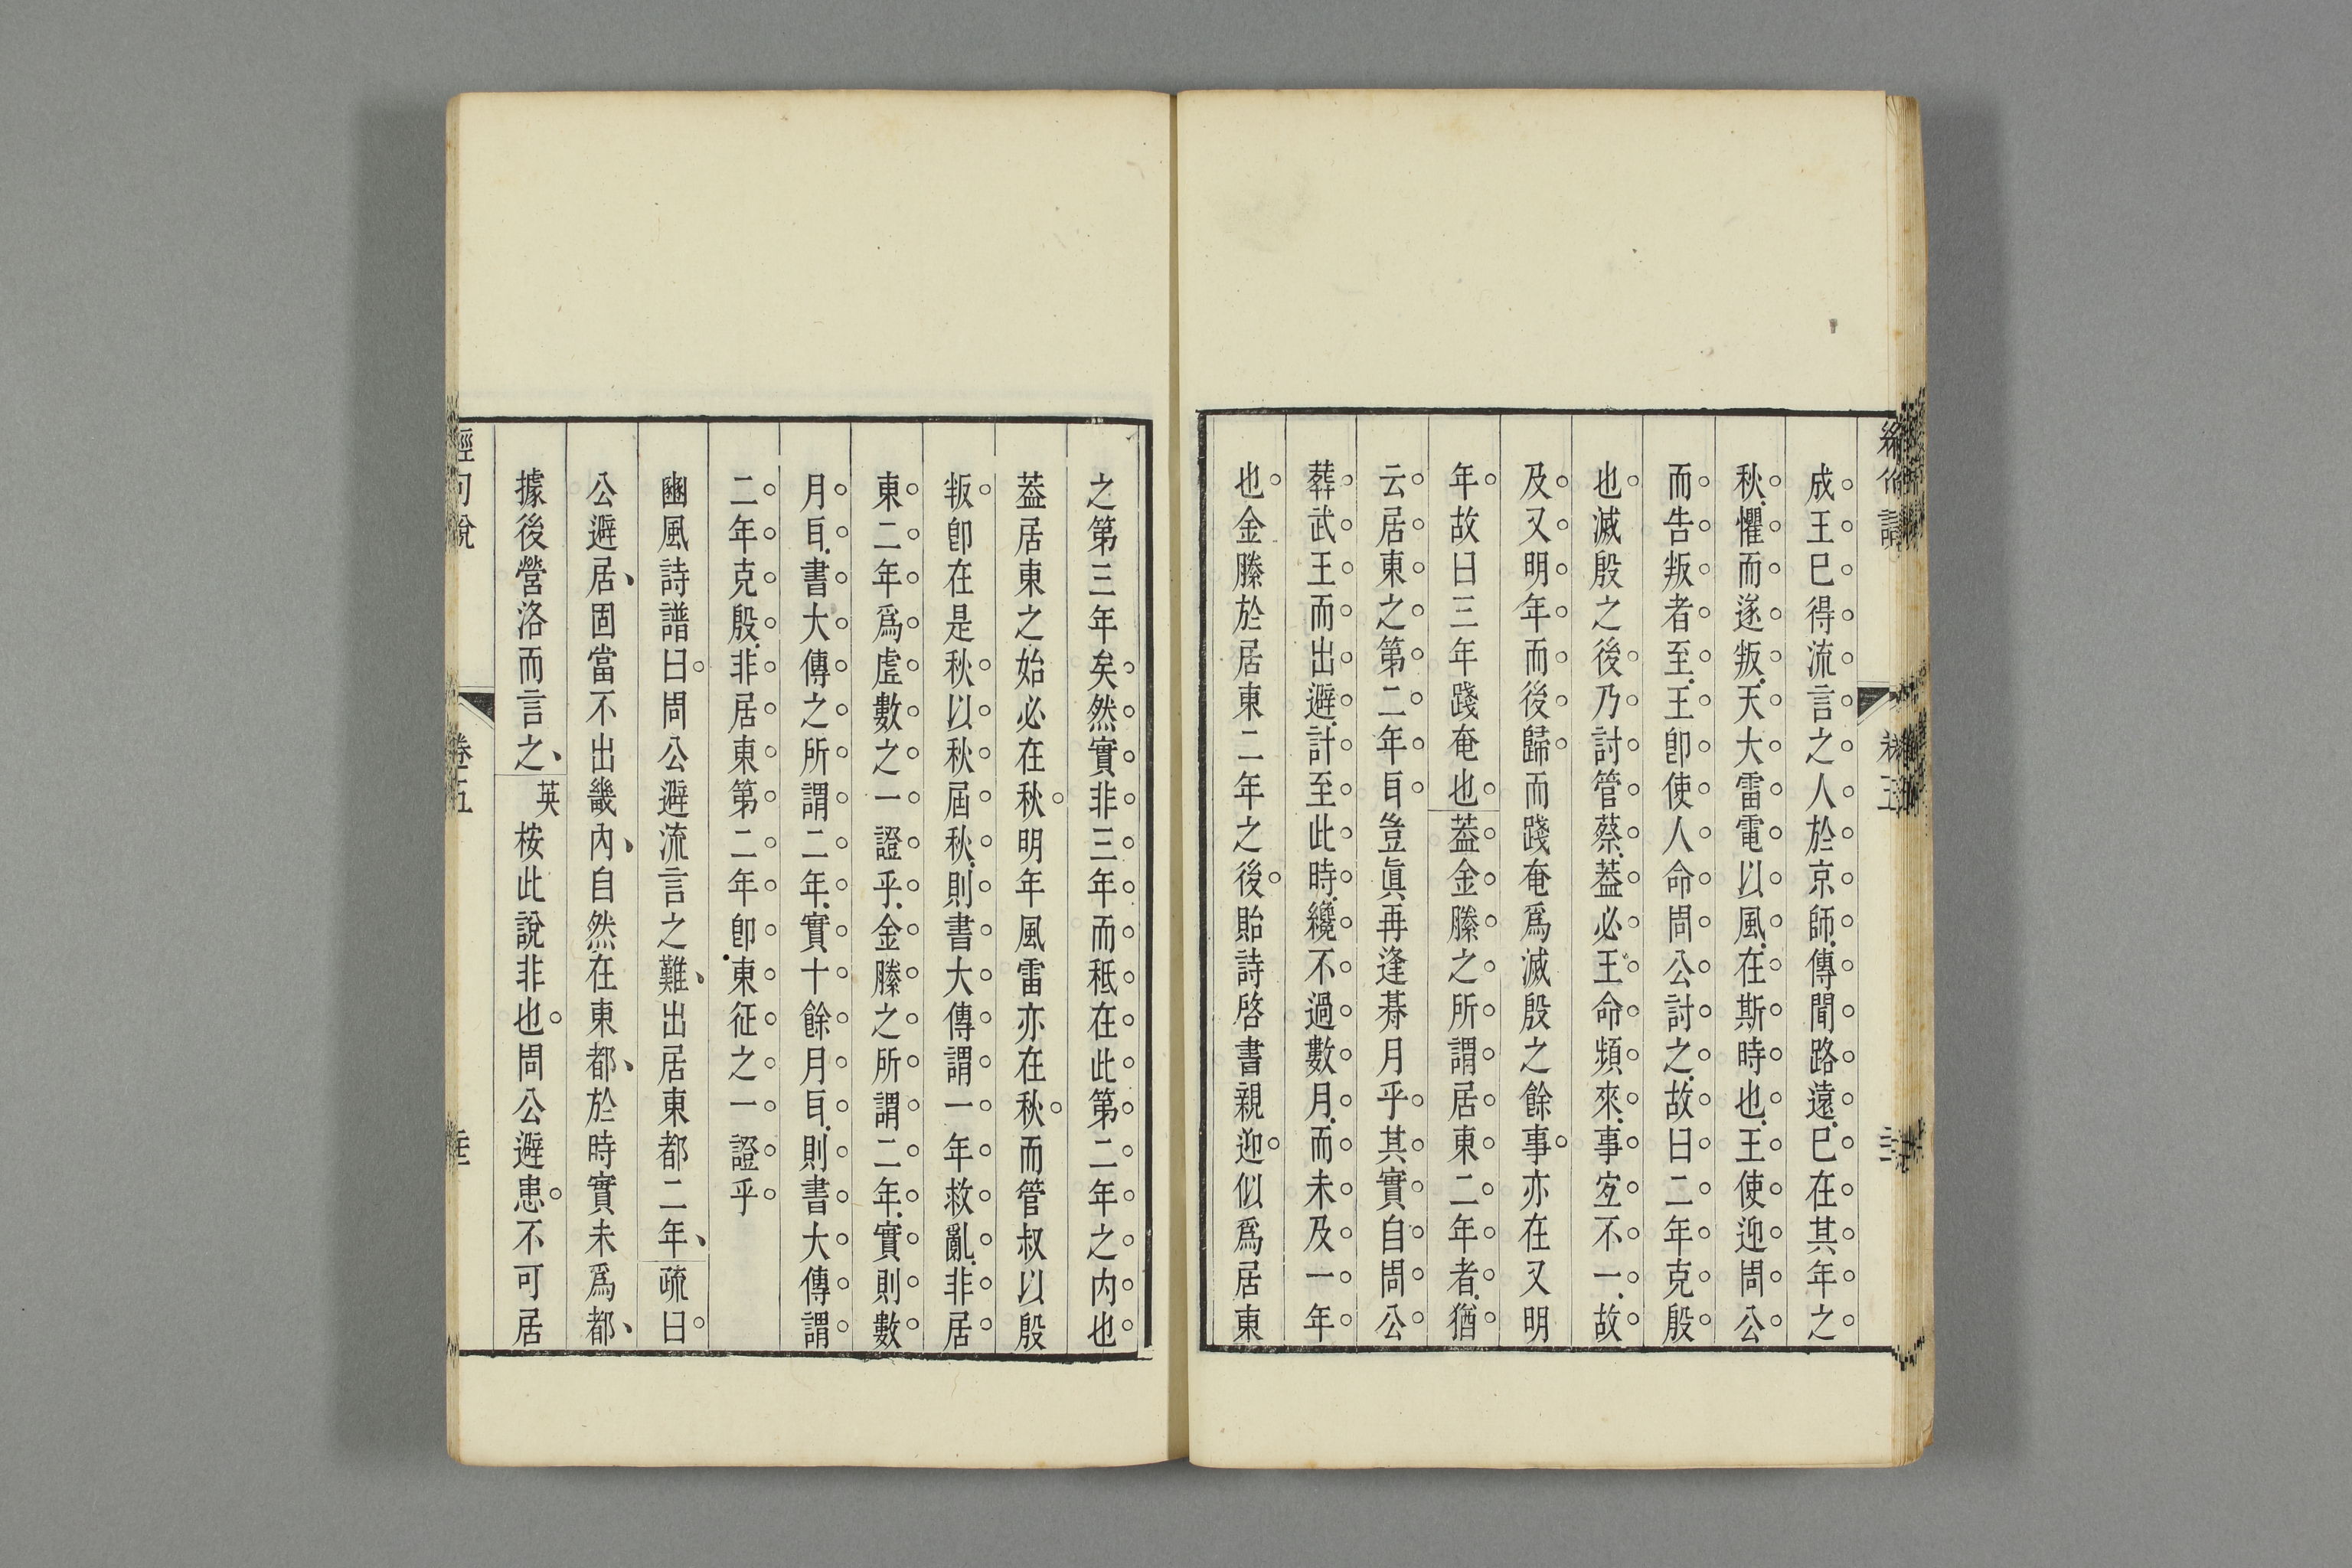 成王巳得流言之人於京師傳聞路遠巳在其年之
秋懼而遂叛天大雷電以風在斯時也王使迎周公
而告叛者至王卽使人命周公討之故曰二年克殷
也滅殷之後乃討管蔡葢必王命頻來事宐不一故
及又明年而後歸而踐奄爲滅殷之餘事亦在又明
年故曰三年踐奄也葢金縢之所謂居東二年者猶
云居東之第二年㠯豈眞再逢朞月乎其實自周公
葬武王而出避計至此時纔不過數月而未及一年
也金縢於居東二年之後貽詩啓書親迎似爲居東
之第三年矣然實非三年而秪在此第二年之内也
葢居東之始必在秋明年風雷亦在秋而管叔以殷
叛卽在是秋以秋屆秋則書大傳謂一年救亂非居
東二年爲虛數之一證乎金縢之所謂二年實則數
月㠯書大傳之所謂二年實十餘月㠯則書大傳謂
二年克殷非居東第二年卽東征之一證乎
豳風詩譜曰周公避流言之難出居東都二年疏曰
公避居固當不出畿內自然在東都於時實未爲都
據後營洛而言之英桉此說非也周公避患不可居
經句說
卷五